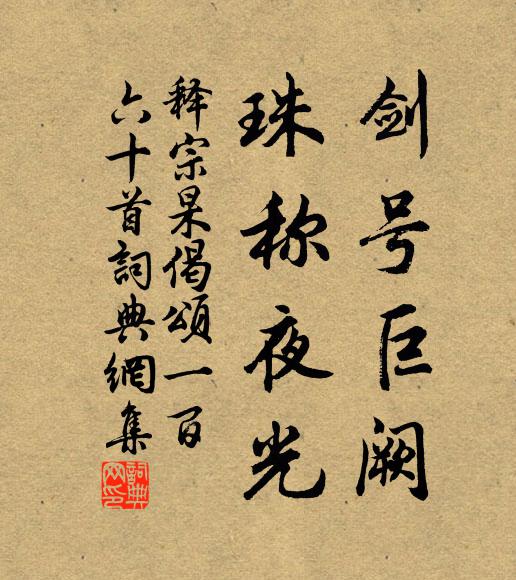 剑号巨阙
珠称夜光
释宗杲偈頌一百
六十首詞典網集